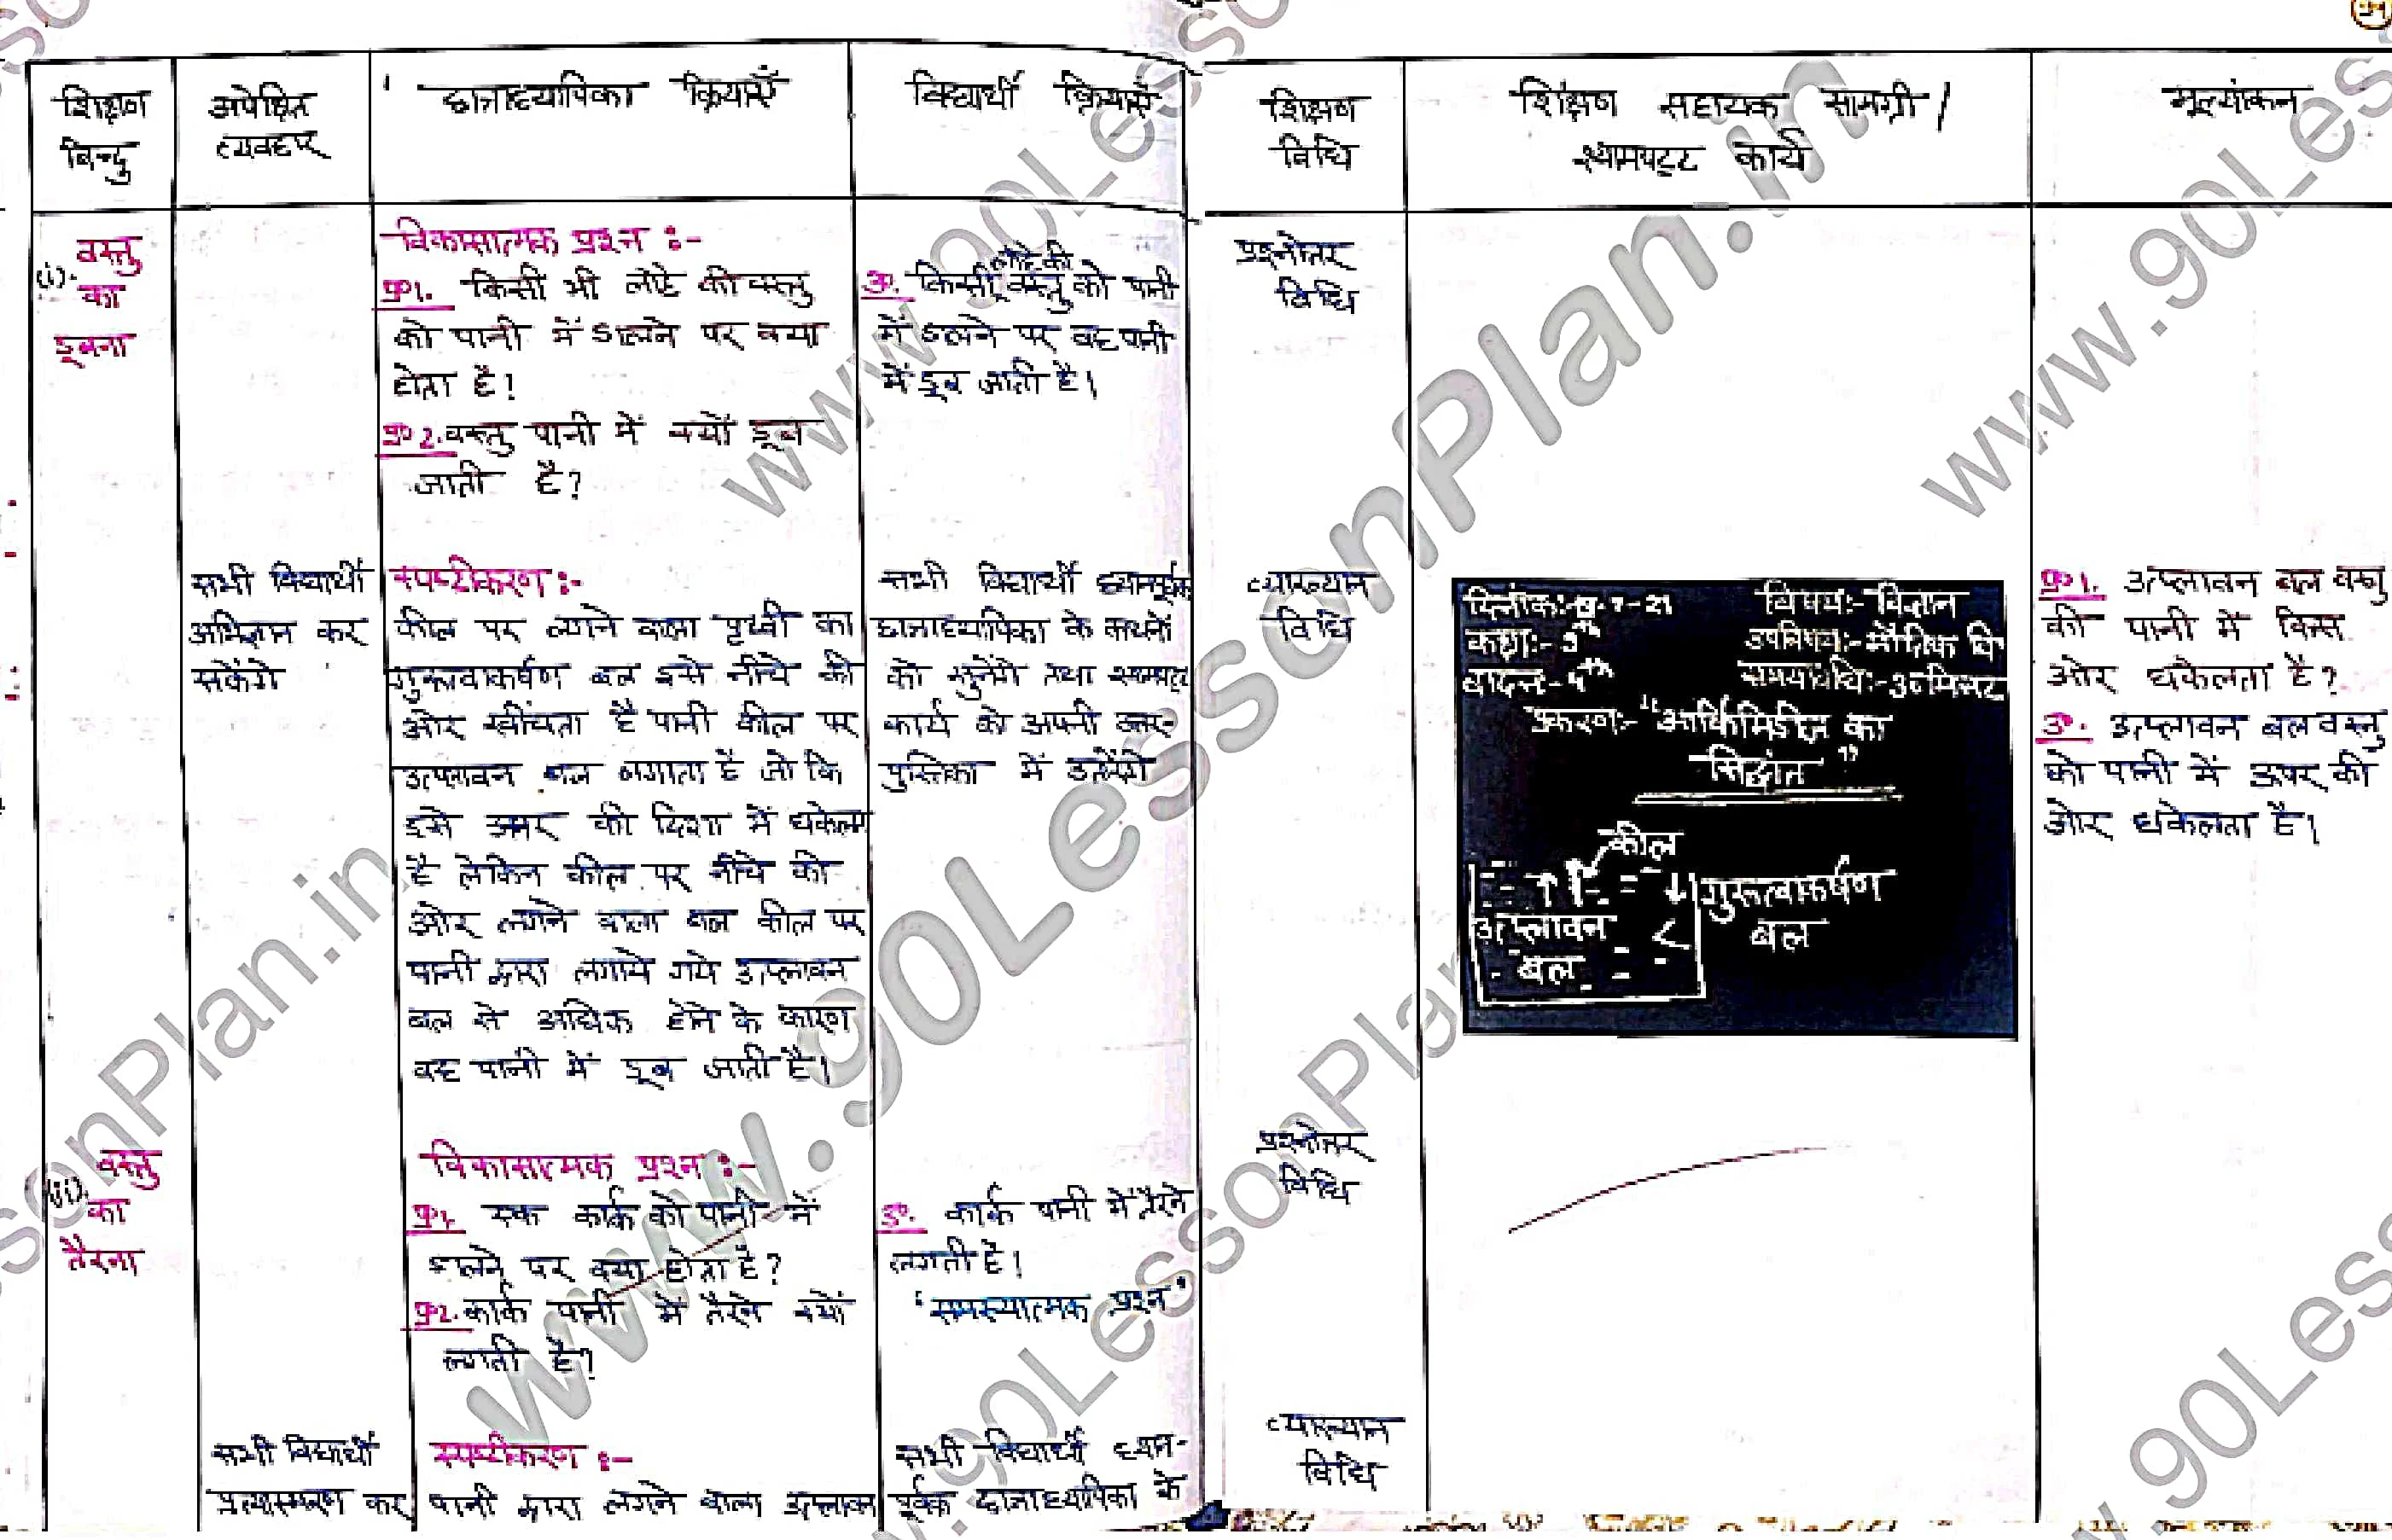 शिक्षण
बिन्दु
अपेक्षित
व्यवहार
छात्राध्यापिका क्रियाएँ
विद्यार्थी क्रियाएँ
शिक्षण
विधि
शिक्षण सहायक सामग्री /
श्यामपट्ट कार्य
मूल्यांकन
(i). वस्तु
का
डूबना
विकासात्मक प्रश्न :-
प्र०1. किसी भी लोहे की वस्तु
को पानी में डालने पर क्या
होता है!
प्र० 2. वस्तु पानी में क्यों डूब
जाती है?
उ. किसी लोहे की वस्तु को पानी
में डालने पर वह पानी
में डूब जाती है।
प्रश्नोत्तर
विधि
सभी विद्यार्थी
अभिज्ञान कर
सकेंगे
स्पष्टीकरण :-
कील पर लगने वाला पृथ्वी का
गुरुत्वाकर्षण बल इसे नीचे की
ओर खींचता है पानी कील पर
उत्प्लावन बल लगाता है जो कि
इसे ऊपर की दिशा में धकेलता
है लेकिन कील पर नीचे की
ओर लगने वाला बल कील पर
पानी द्वारा लगाये गये उत्प्लावन
बल से अधिक होने के कारण
वह पानी में डूब जाती है।
सभी विद्यार्थी ध्यानपूर्वक
छात्राध्यापिका के कथनों
को सुनेंगे तथा श्यामपट्ट
कार्य को अपनी उत्तर-
पुस्तिका में उतारेंगे
व्याख्यान
विधि
विषय:- विज्ञान
कक्षा:- 9th
उपविषय:- भौतिक वि
समयावधि:- 30 मिनट
प्रकरण:- "आर्किमिडीज का
सिद्धांत"
कील
उत्प्लावन
बल
गुरुत्वाकर्षण
बल
प्र०1. उत्प्लावन बल वस्तु
को पानी में किस
ओर धकेलता है?
उ०. उत्प्लावन बल वस्तु
को पानी में ऊपर की
ओर धकेलता है।
(ii). वस्तु
का
तैरना
विकासात्मक प्रश्न :-
प्र1. एक कार्क को पानी में
डालने पर क्या होता है?
प्र2. कार्क पानी में तैरने क्यों
लगती है?
उ०. कार्क पानी में तैरने
लगती है।
'समस्यात्मक प्रश्न'
प्रश्नोत्तर
विधि
सभी विद्यार्थी
प्रत्यास्मरण कर
स्पष्टीकरण :-
पानी द्वारा लगने वाला उत्प्लावन
सभी विद्यार्थी ध्यान-
पूर्वक छात्राध्यापिका के
व्याख्यान
विधि
www.90LessonPlan.in